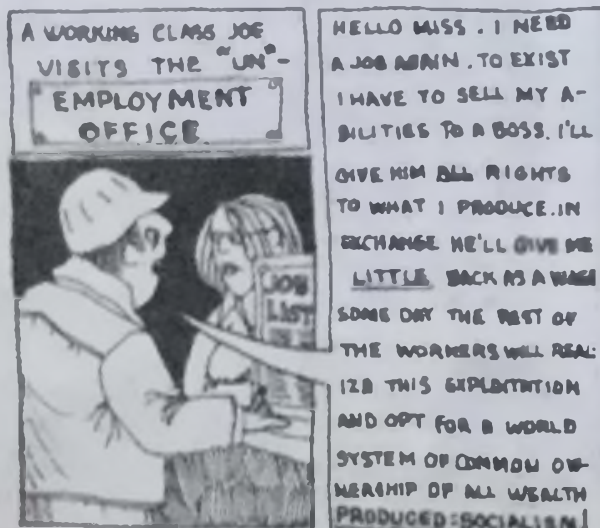 A WORKING CLASS JOE
VISITS THE "UN"-
EMPLOYMENT
OFFICE
JOB
LIST
HELLO MISS. I NEED
A JOB AGAIN. TO EXIST
I HAVE TO SELL MY A-
BILITIES TO A BOSS. I'LL
GIVE HIM ALL RIGHTS
TO WHAT I PRODUCE. IN
EXCHANGE HE'LL GIVE ME
LITTLE BACK AS A WAGE
SOME DAY THE REST OF
THE WORKERS WILL REAL-
IZE THIS EXPLOITATION
AND OPT FOR A WORLD
SYSTEM OF COMMON OW-
NERSHIP OF ALL WEALTH
PRODUCED: SOCIALISM!